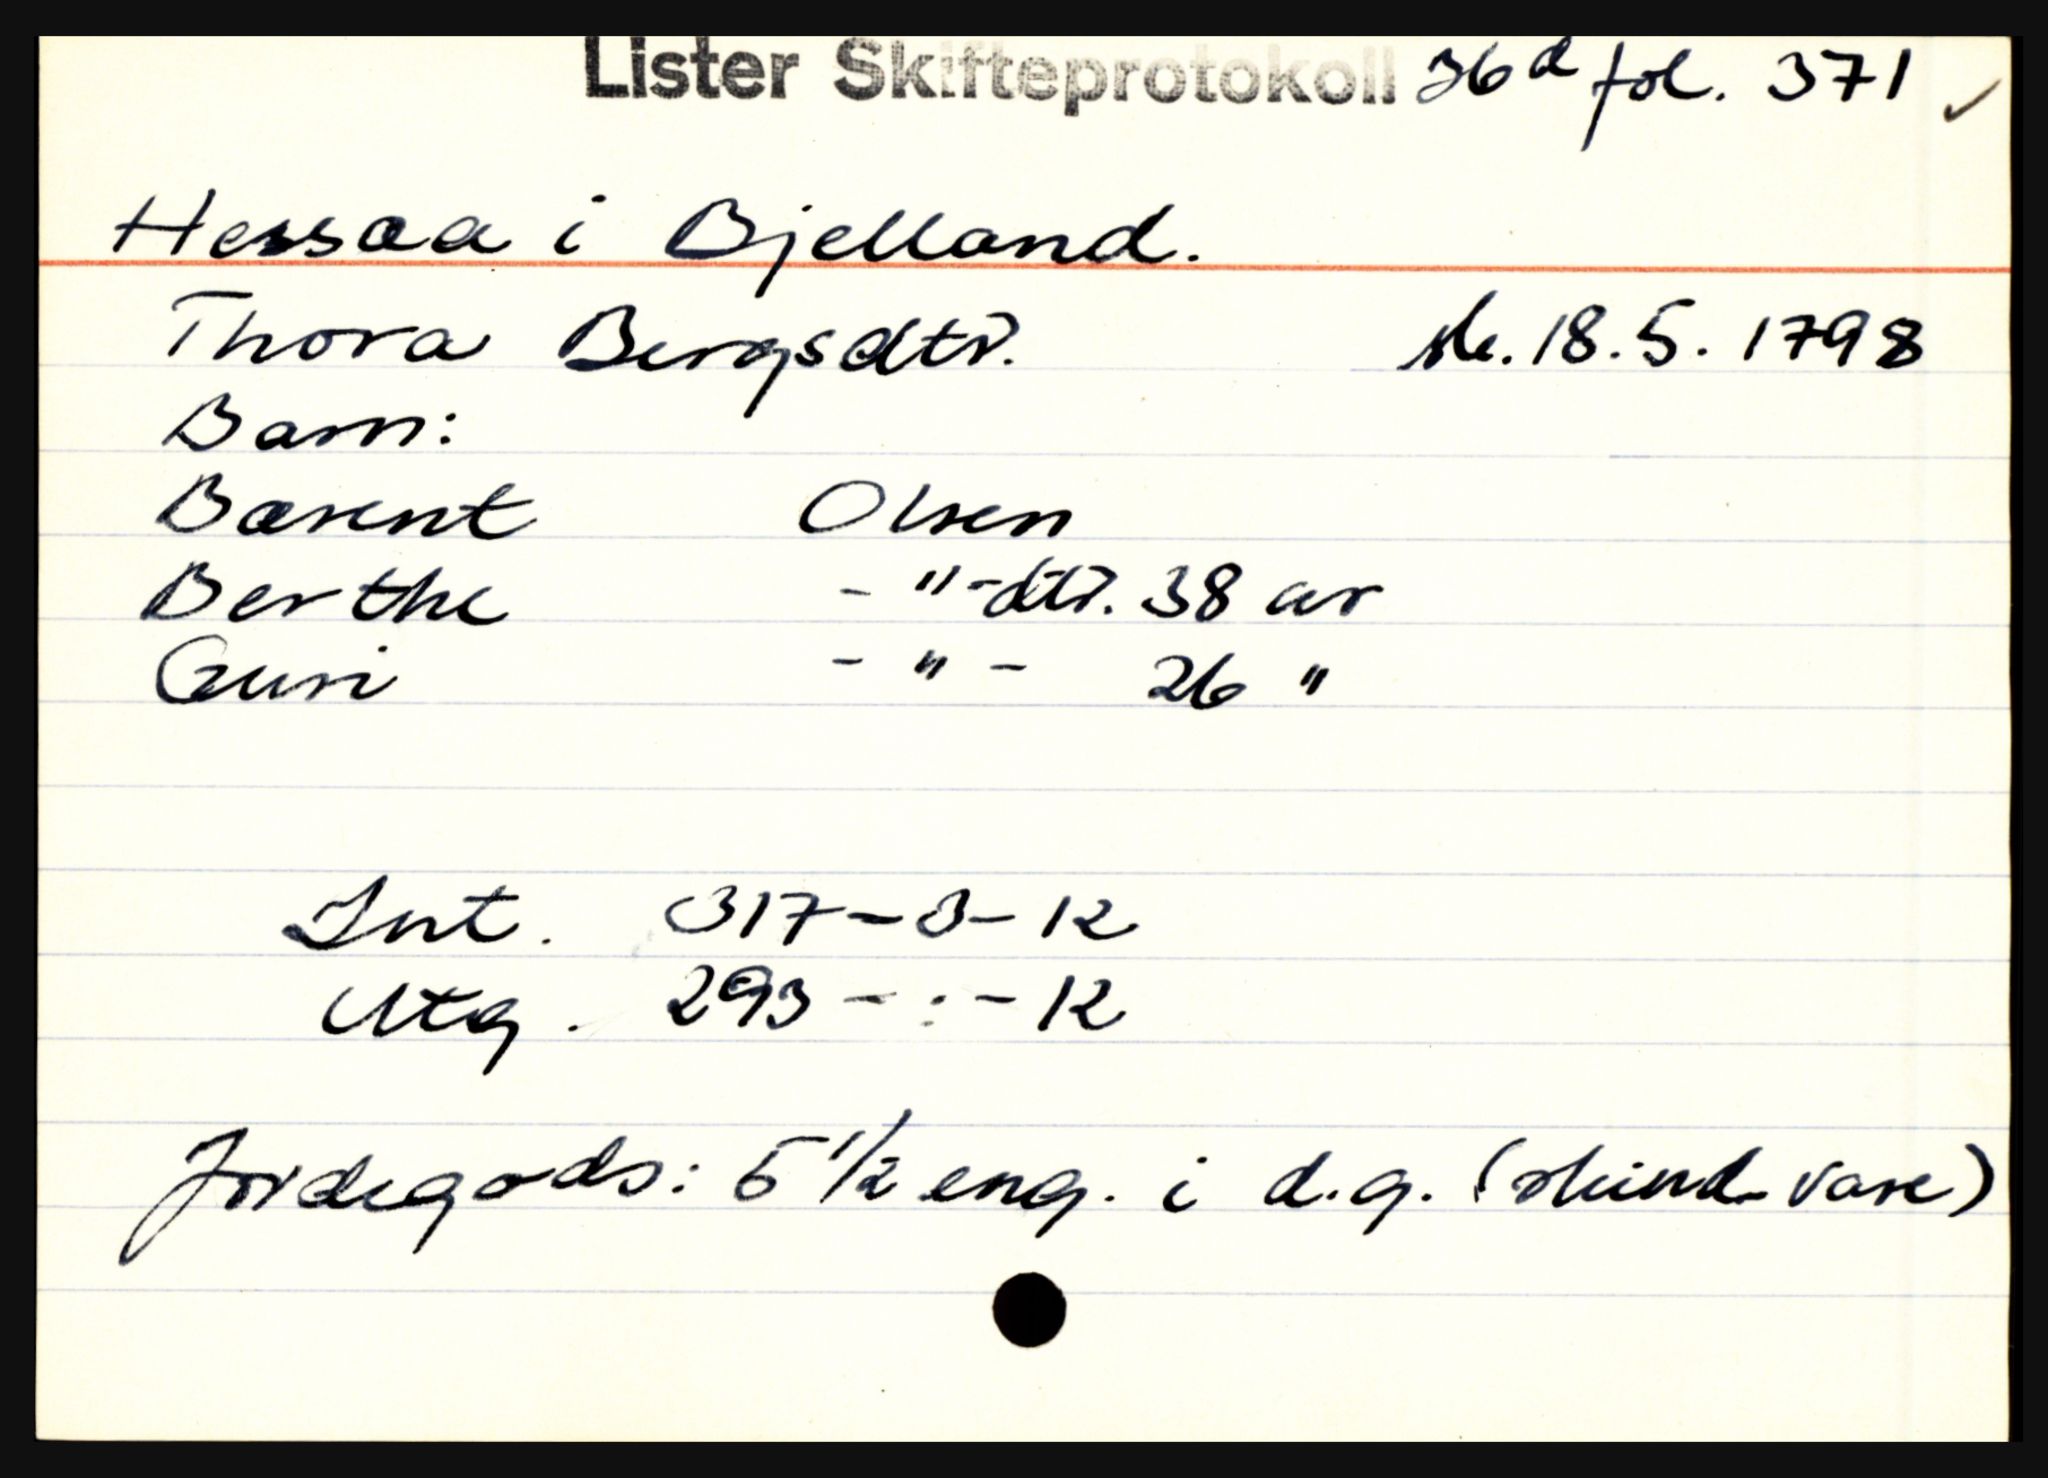 Lister Skifteprotokoll 36d fol. 371 ✓
Hessaa i Bjelland.
Thora Bergsdtr. sk. 18.5. 1798
Barn:
Barent Olsen
Berthe - " - dtr. 38 ar
Guri - " - 26 "
Int. 317 - 3 - 12
Utg. 293 - : - 12
Jordegods: 5 1/2 eng. i d.g. (skind-vare)